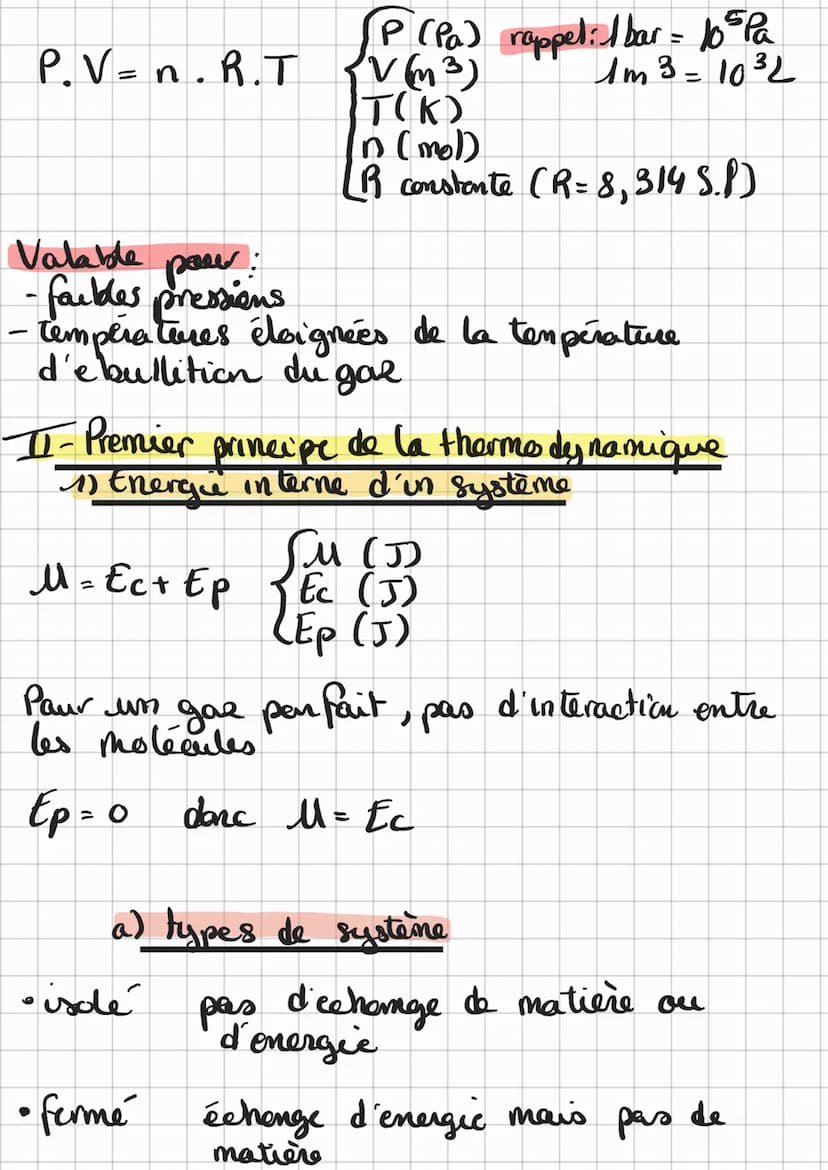 P.V = n . R.T
P (Pa) rappel: 1 bar = 10^5 Pa
V (m^3) 1m^3 = 10^3 L
T(K)
n (mol)
R constante (R = 8,314 S.I)
Valable pour :
- faibles pressions
- températures éloignées de la température
d'ebullition du gaz
II - Premier principe de la thermodynamique
1) Energie interne d'un système
U = Ec + Ep
U (J)
Ec (J)
Ep (J)
Pour un gaz parfait, pas d'interaction entre
les molécules
Ep = 0 donc U = Ec
a) types de système
• isolé pas d'echange de matière ou
d'energie
• fermé échange d'energie mais pas de
matière